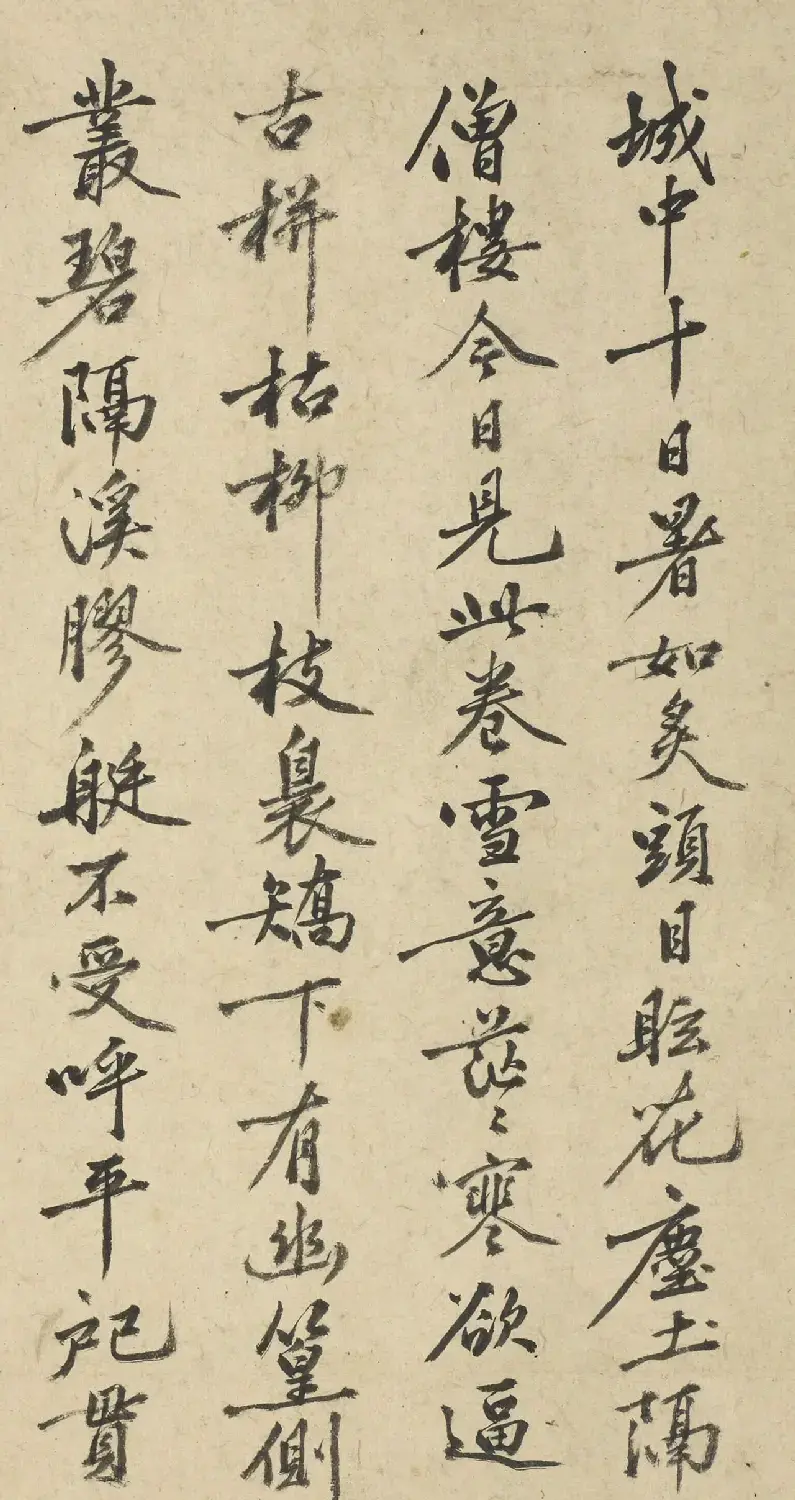 城中十日暑如炙頭目眩花塵土隔
僧樓今日見此卷雪意茫〻寒欲逼
古栟枯柳枝裊矯下有幽篁側
叢碧隔溪膠艇不受呼平貫